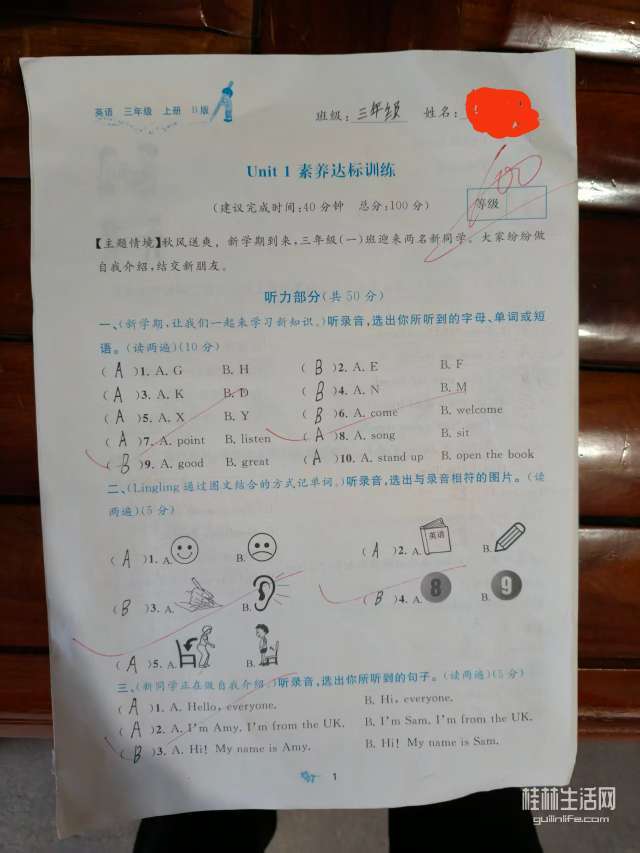 英语 三年级 上册 B版
班级：三年级 姓名：
Unit 1 素养达标训练
100
（建议完成时间：40分钟 总分：100分）
等级
【主题情境】秋风送爽，新学期到来，三年级（一）班迎来两名新同学。大家纷纷做
自我介绍，结交新朋友。
听力部分（共50分）
一、（新学期，让我们一起来学习新知识。）听录音，选出你所听到的字母、单词或短
语。（读两遍）（10分）
（ A ）1. A. G B. H （ B ）2. A. E B. F
（ A ）3. A. K B. D （ B ）4. A. N B. M
（ A ）5. A. X B. Y （ B ）6. A. come B. welcome
（ A ）7. A. point B. listen （ A ）8. A. song B. sit
（ B ）9. A. good B. great （ A ）10. A. stand up B. open the book
二、（Lingling 通过图文结合的方式记单词。）听录音，选出与录音相符的图片。（读
两遍）（5分）
英语
（ A ）1. A. B. （ A ）2. A. B.
（ B ）3. A. B. （ B ）4. A. 8 B. 9
（ A ）5. A. B.
三、（新同学正在做自我介绍。）听录音，选出你所听到的句子。（读两遍）（5分）
（ A ）1. A. Hello, everyone. B. Hi, everyone.
（ A ）2. A. I'm Amy. I'm from the UK. B. I'm Sam. I'm from the UK.
（ B ）3. A. Hi! My name is Amy. B. Hi! My name is Sam.
1
桂林生活网
guilinlife.com